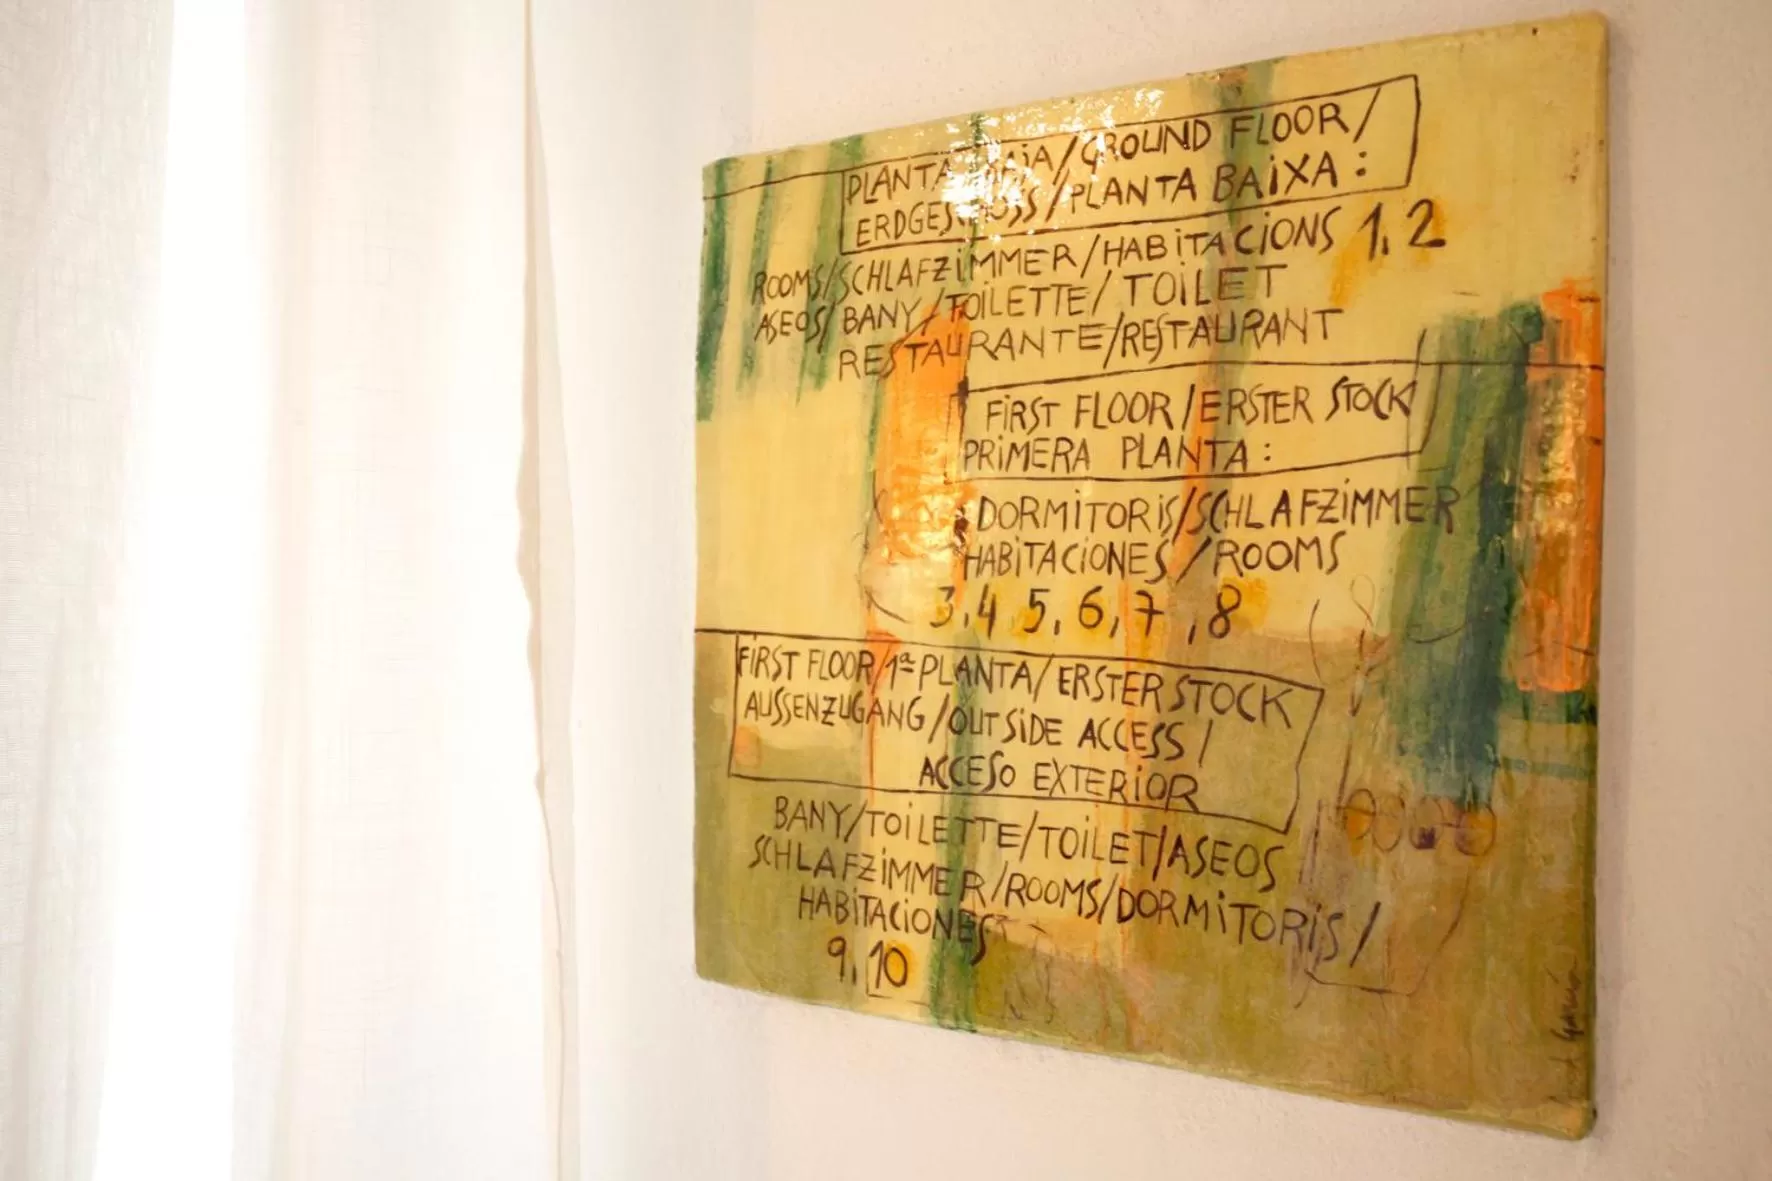 PLANTA BAJA/GROUND FLOOR/
ERDGESCHOSS/PLANTA BAiXA:
ROOMS/SCHLAFZiMMER/HABiTACiONS 1, 2
ASEOS/BANY/TOiLETTE/TOiLET
RESTAURANTE/RESTAURANT
FiRST FLOOR/ERSTER STOCK
PRiMERA PLANTA:
DORMiTORiS/SCHLAFZiMMER
HABiTACiONES/ROOMS
3,4 5,6,7,8
FiRST FLOOR/1ª PLANTA/ERSTER STOCK
AUSSENZUGANG/OUTSiDE ACCESS/
ACCESO EXTERiOR
BANY/TOiLETTE/TOiLET/ASEOS
SCHLAFZiMMER/ROOMS/DORMiTORiS/
HABiTACiONES
9,10